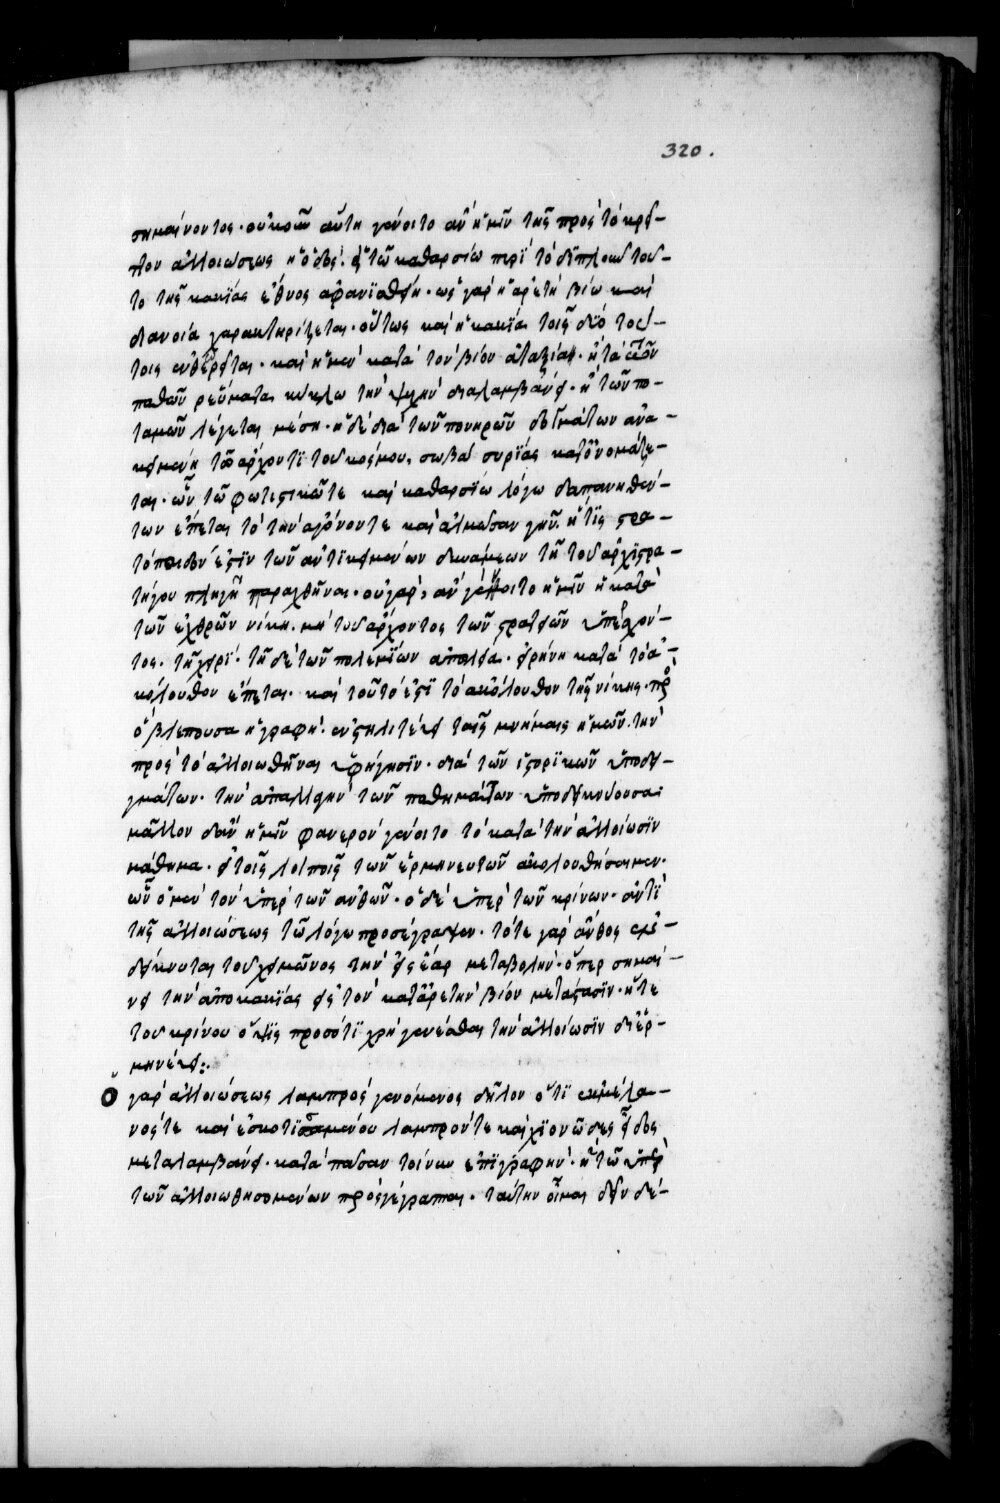 320.
σημαίνοντος· οὐκοῦν αὕτη γένοιτο ἂν ἡμῖν τῆς πρὸς τὸ κρεῖ-
ττον ἀλλοιώσεως ἡ ὁδὸς. εἰ τῶ καθαρσίω πυρὶ τὸ διπλοῦν τοῦ-
το τῆς κακίας ἔθνος ἀφανισθῆ. ὡς γὰρ ἡ ἀρετὴ βίω καὶ
διανοία χαρακτηρίζεται. οὕτως καὶ ἡ κακία τοῖς δύο τού-
τοις ἐνθεωρεῖται. καὶ ἡ μὲν κατὰ τὸν βίον ἀταξία. ἢ τὰ τῶν
παθῶν ῥεύματα κύκλω τὴν ψυχὴν διαλαμβάνει. ἢ τῶν πο-
ταμῶν λέγεται μέση. ἡ δὲ διὰ τῶν πονηρῶν δογμάτων ἀνα-
κειμένη τῶ ἄρχοντι τοῦ κόσμου. σωβαὶ συρίας κατονομάζε-
ται. ὧν τῶ φωτιστικῶ τε καὶ καθαρσίω λόγω δαπανηθέν-
των ἕπεται τὸ τὴν ἀγόνον τε καὶ ἁλμῶσαν γῆν. ἥτις στρα-
τόπεδον ἐστὶν τῶν ἀντικειμένων δυνάμεων τῆ τοῦ ἀρχιστρα-
τήγου πληγῆ παραχθῆναι. οὐ γὰρ ἂν γένοιτο ἡμῖν ἡ κατὰ
τῶν ἐχθρῶν νίκη. μὴ τοῦ ἄρχοντος τῶν στρατειῶν ὑπάρχον-
τος. τῆ χειρί. τῆ δὲ τῶν πολεμίων ἀπωλεία. εἰρήνη κατὰ τὸ ἀ-
κόλουθον ἕπεται. καὶ τοῦτο ἐστὶ τὸ ἀκόλουθον τῆς νίκης. πρὸς
ὃ βλέπουσα ἡ γραφὴ. ἐνστηλιτεύει ταῖς μνήμαις ἡμῶν. τὴν
πρὸς τὸ ἀλλοιωθῆναι ὑφήγησιν. διὰ τῶν ἱστορικῶν ὑποδει-
γμάτων. τὴν ἀπαλλαγὴν τῶν παθημάτων ὑποδεικνύουσα
μᾶλλον δ' ἂν ἡμῖν φανερὸν γένοιτο τὸ κατὰ τὴν ἀλλοίωσιν
μάθημα. εἰ τοῖς λοιποῖς τῶν ἑρμηνευτῶν ἀκολουθήσαιμεν.
ὧν ὁ μὲν τὸν ὑπὲρ τῶν ἀνθῶν. ὁ δὲ ὑπὲρ τῶν κρίνων. ἀντὶ
τῆς ἀλλοιώσεως τῶ λόγω προσέγραψεν. τό τε γὰρ ἄνθος ἐπι-
δείκνυται τοῦ χειμῶνος τὴν εἰς ἔαρ μεταβολὴν. ὅπερ σημαί-
νει τὴν ἀπὸ κακίας εἰς τὸν κατ' ἀρετὴν βίον μετάστασιν. ἥ τε
τοῦ κρίνου ὄψις πρὸς ὅτι χρὴ γενέσθαι τὴν ἀλλοίωσιν διερ-
μηνεύει:.
Ὁ γὰρ ἀλλοιώσεως λαμπρὸς γενόμενος δῆλον ὅτι ἐκ μέλα-
νός τε καὶ ἐσκοτισαμένου λαμπρόν τε καὶ χιονῶδες εἶδος
μεταλαμβάνει. κατὰ πᾶσαν τοίνυν ἐπιγραφὴν. ἢ τῶ ὑπὲρ
τῶν ἀλλοιωθησομένων προσγέγραπται. ταύτην οἶμαι δεῖν δέ-